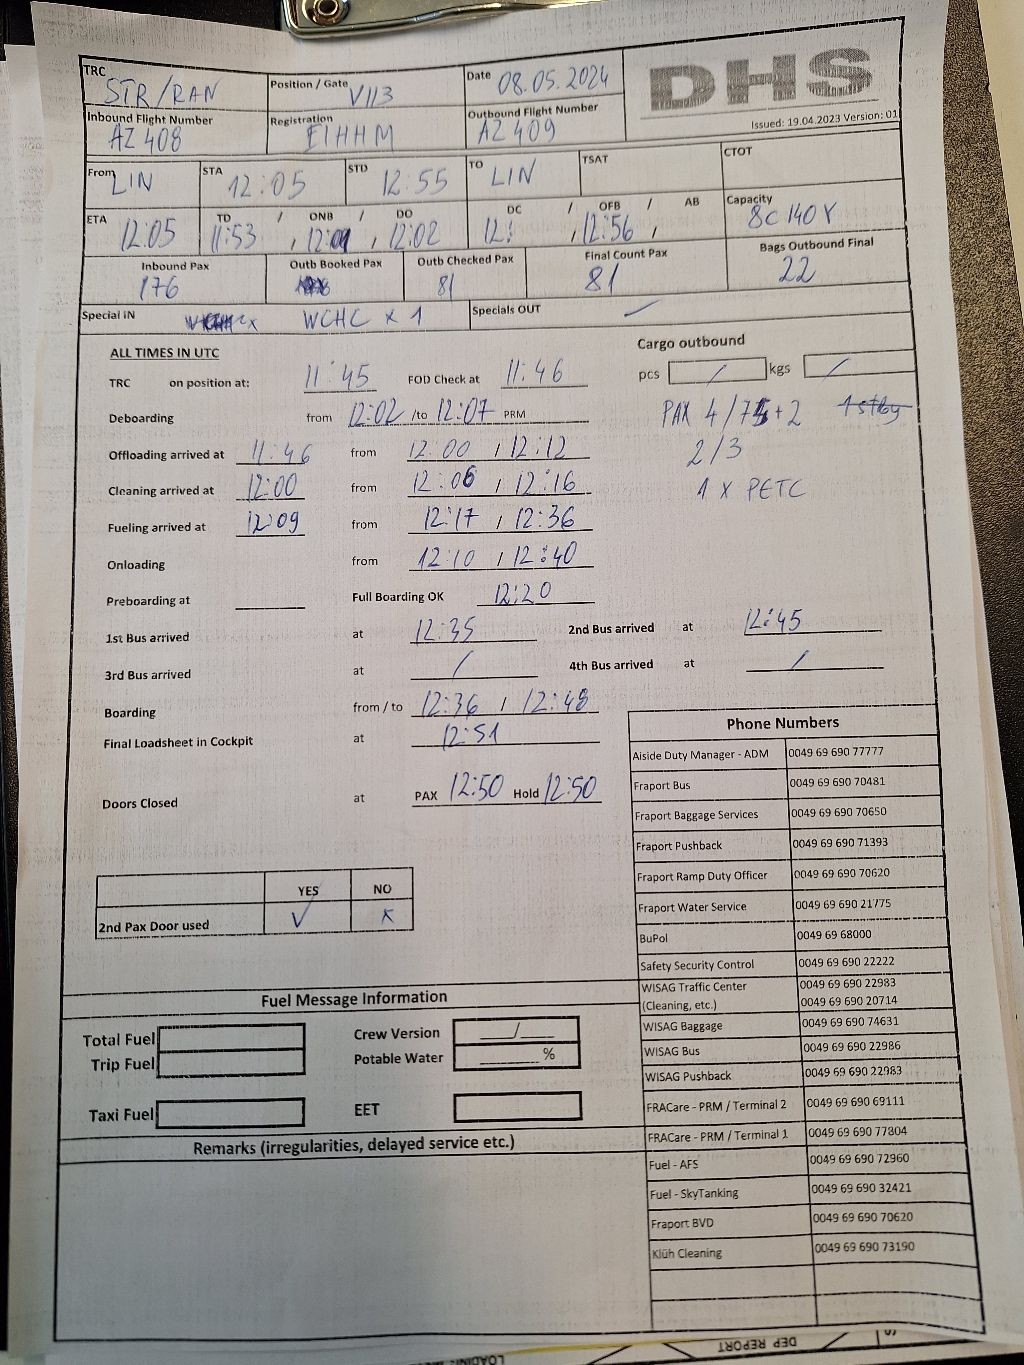 TRC STR/RAN Position / Gate V113 Date 08.05.2024 DHS
Issued: 19.04.2023 Version: 01
Inbound Flight Number AZ 408 Registration EIHHM Outbound Flight Number AZ 409
From LIN STA 12:05 STD 12:55 TO LIN TSAT CTOT
ETA 12:05 TD / ONB / DO 11:53 , 12:01 , 12:02 DC / OFB / AB 12: , 12:56 , Capacity 8C 140Y
Inbound Pax 176 Outb Booked Pax Outb Checked Pax 81 Final Count Pax 81 Bags Outbound Final 22
Special IN WCHC x 1 Specials OUT /
ALL TIMES IN UTC Cargo outbound
TRC on position at: 11:45 FOD Check at 11:46 pcs / kgs /
Deboarding from 12:02 /to 12:07 PRM PAX 4/75+2 1 stby
Offloading arrived at 11:46 from 12:00 / 12:12 2/3
Cleaning arrived at 12:00 from 12:06 / 12:16 1 x PETC
Fueling arrived at 12:09 from 12:17 / 12:36
Onloading from 12:10 / 12:40
Preboarding at Full Boarding OK 12:20
1st Bus arrived at 12:35 2nd Bus arrived at 12:45
3rd Bus arrived at / 4th Bus arrived at /
Boarding from / to 12:36 / 12:48
Final Loadsheet in Cockpit at 12:51
Doors Closed at PAX 12:50 Hold 12:50
YES NO
2nd Pax Door used ✓ x
Fuel Message Information
Total Fuel Crew Version /
Trip Fuel Potable Water %
Taxi Fuel EET
Remarks (irregularities, delayed service etc.)
Phone Numbers
Aiside Duty Manager - ADM 0049 69 690 77777
Fraport Bus 0049 69 690 70481
Fraport Baggage Services 0049 69 690 70650
Fraport Pushback 0049 69 690 71393
Fraport Ramp Duty Officer 0049 69 690 70620
Fraport Water Service 0049 69 690 21775
BuPol 0049 69 68000
Safety Security Control 0049 69 690 22222
WISAG Traffic Center 0049 69 690 22983
(Cleaning, etc.) 0049 69 690 20714
WISAG Baggage 0049 69 690 74631
WISAG Bus 0049 69 690 22986
WISAG Pushback 0049 69 690 22983
FRACare - PRM / Terminal 2 0049 69 690 69111
FRACare - PRM / Terminal 1 0049 69 690 77804
Fuel - AFS 0049 69 690 72960
Fuel - SkyTanking 0049 69 690 32421
Fraport BVD 0049 69 690 70620
Klüh Cleaning 0049 69 690 73190
DEP REPORT